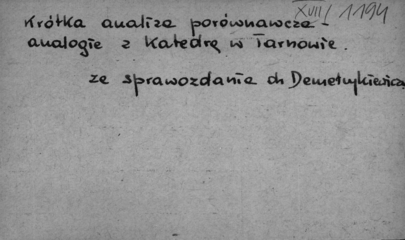 XVII/1194
Krótka analiza porównawcza -
analogie z Katedrą w Tarnowie.
ze sprawozdania dr Demetrykiewicza